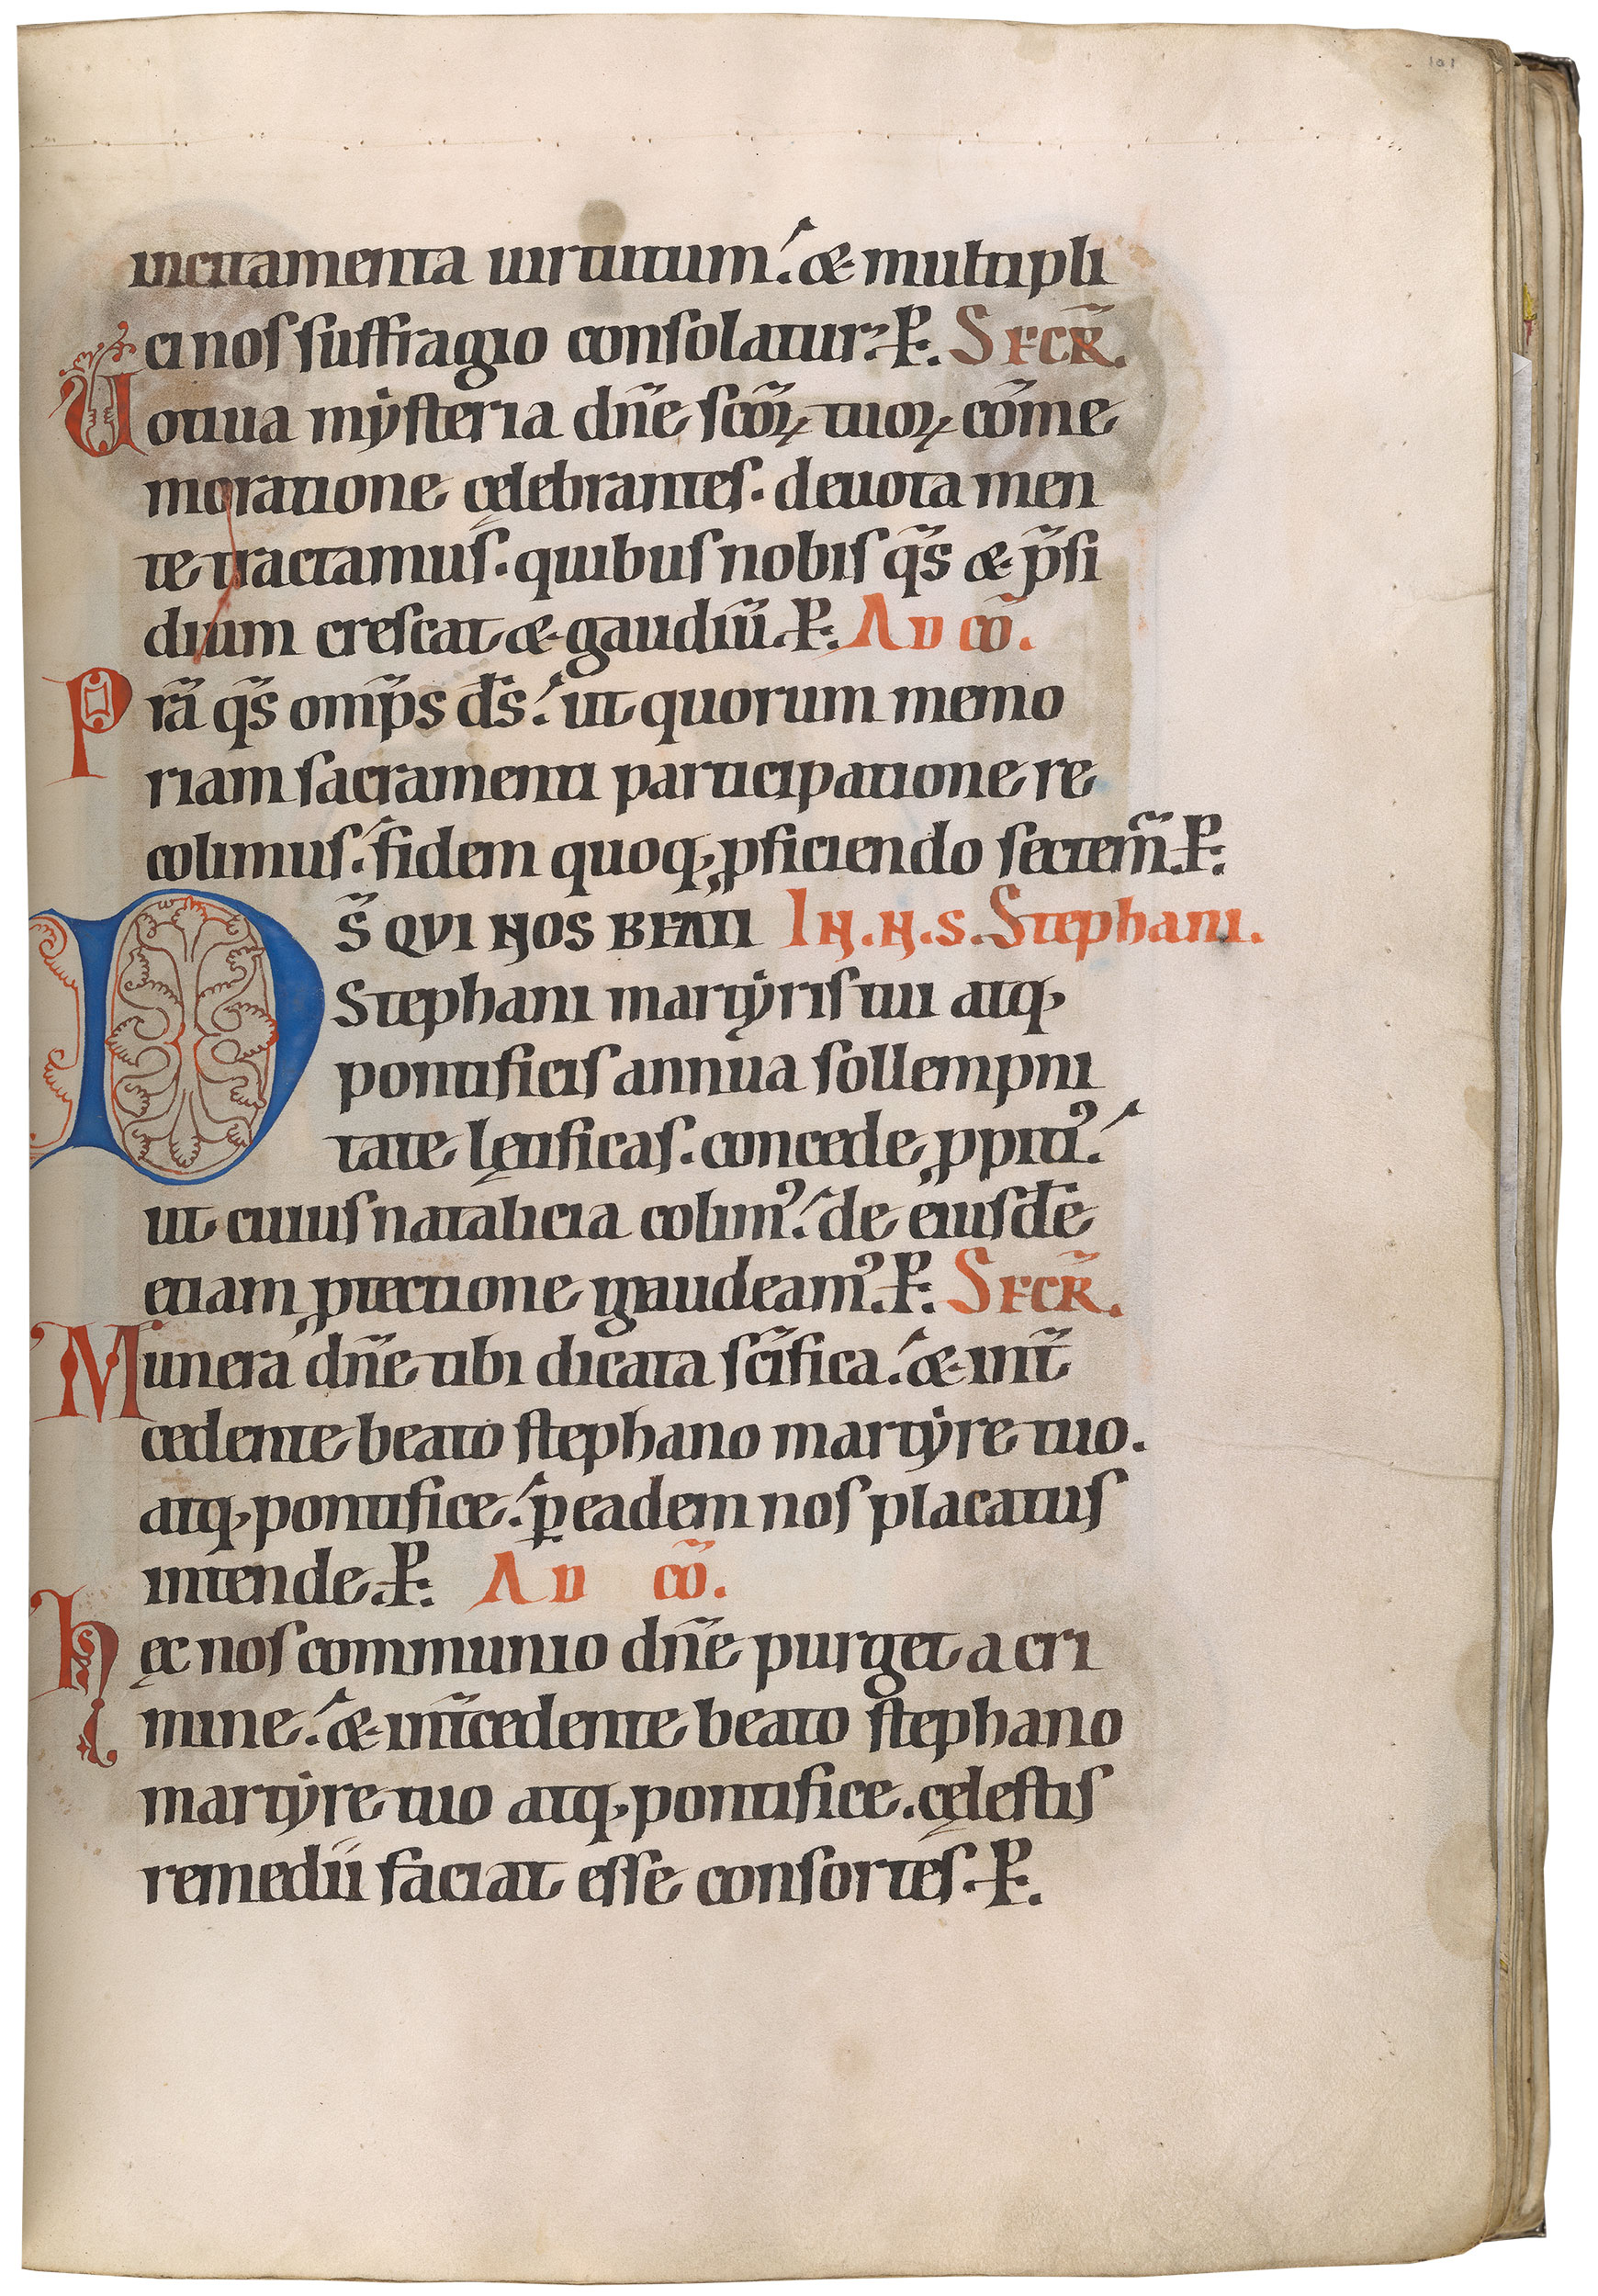 101
incitamenta uirtutum. & multipli
ci nos suffragio consolatur. P. SECR̄.
Uotiua mẏsteria dn̄e sc̄oꝝ tuoꝝ cō̄me
moratione cęlebrantes. deuota men
te tractamus. quibus nobis q̄s & p̄si
dium crescat & gaudiū. P. AD CŌ.
Prā q̄s omp̄s ds̄. ut quorum memo
riam sacramenti participatione re
colimus. fidem quoq; ꝓficiendo sectem̄. P.
Ds̄ QUI NOS BEATI IN. N. S. Stephani.
Stephani martẏris tui atq;
pontificis annua sollempni
tate lętificas. concede ꝓpiti᾽.
ut cuius natalicia colim᾽. de eiusdē
etiam ꝓtectione gaudeam᾽. P. SECR̄.
Munera dn̄e tibi dicata sc̄ifica. & int̄
cedente beato stephano martẏre tuo.
atq; pontifice. ꝑ eadem nos placatus
intende. P. AD CŌ.
hęc nos communio dn̄e purget a cri
mine. & int̄cedente beato stephano
martẏre tuo atq; pontifice. cęlestis
remedii faciat esse consortes. P.